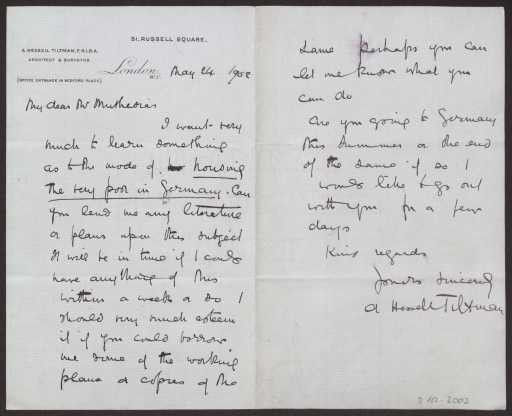 51, RUSSELL SQUARE,
A. HESSELL TILTMAN, F.R.I.B.A.
ARCHITECT & SURVEYOR
(OFFICE ENTRANCE IN BEDFORD PLACE)
London, W.C. May 24 1902
My dear Mr Muthesius
I want very
much to learn something
as to the mode of housing
the very poor in Germany. Can
you lend me any literature
or plans upon this subject
It will be in time if I could
have anything of this
within a week or so I
should very much esteem
it if you could borrow
me some of the working
plans or copies of the
same perhaps you can
let me know what you
can do
Are you going to Germany
this summer or the end
of the same if so I
would like to go out
with you for a few
days
Kind regards
Yours sincerely
A Hessell Tiltman
D 102-2002